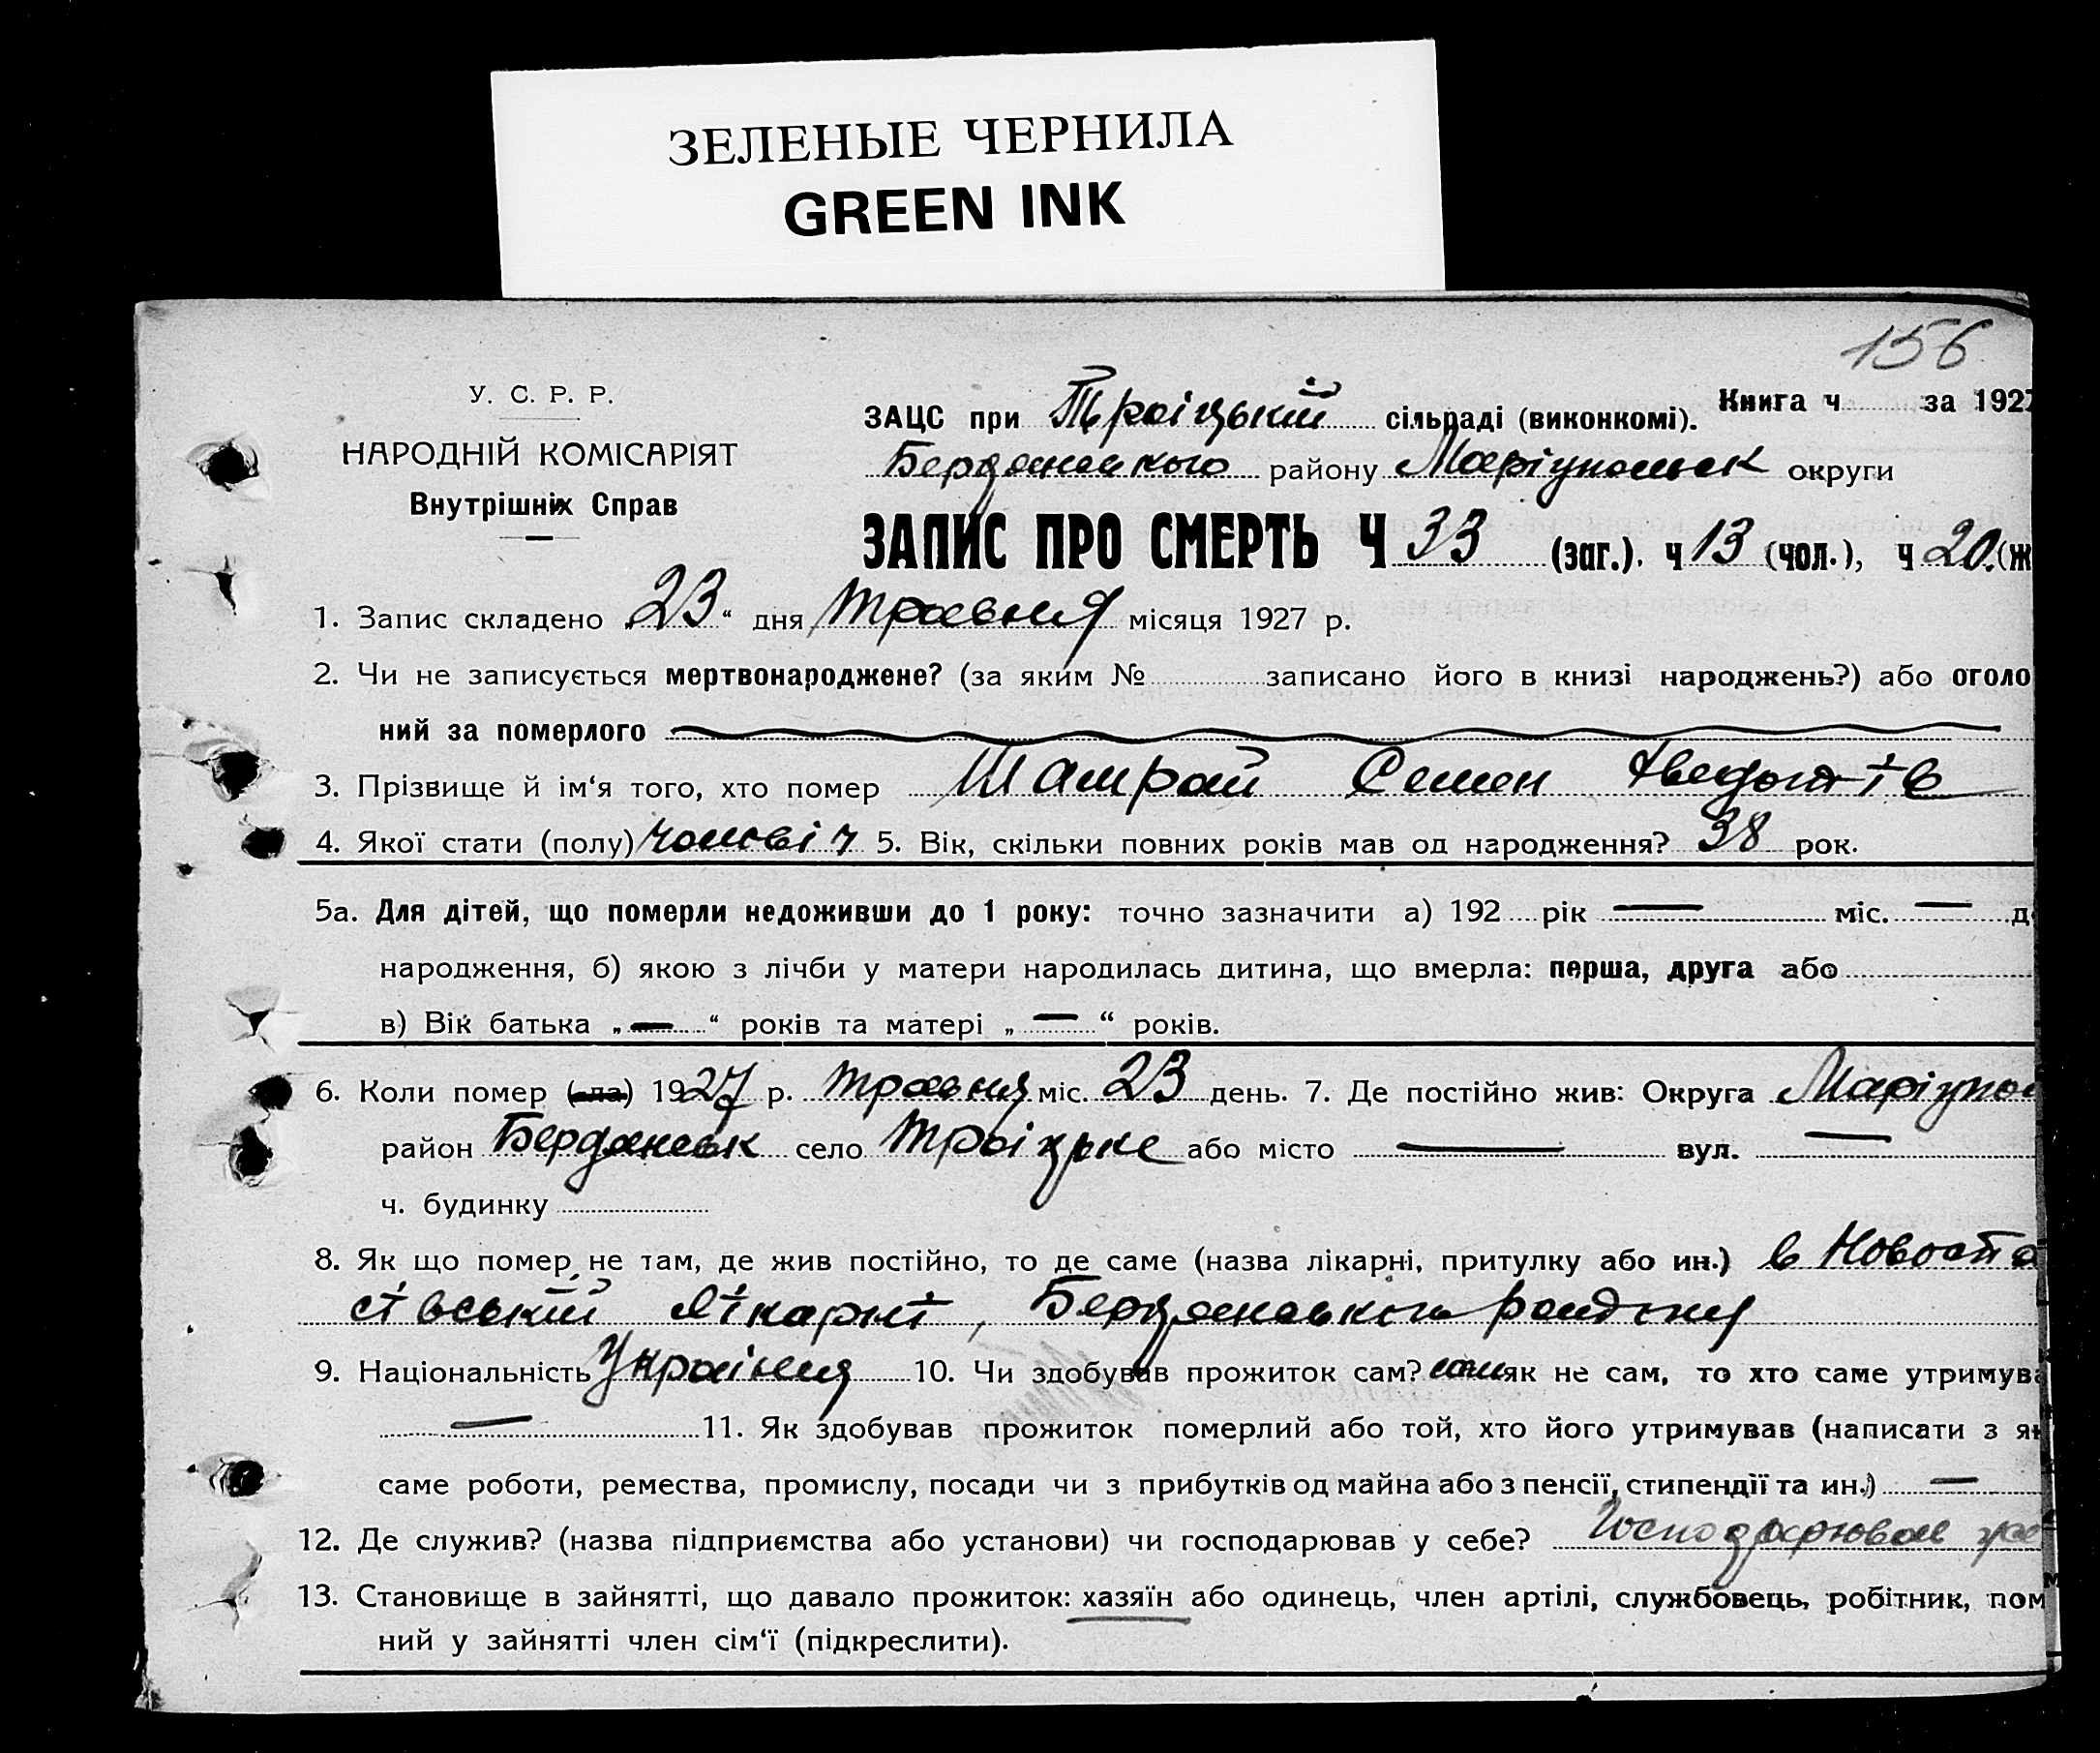 ЗЕЛЕНЫЕ ЧЕРНИЛА
GREEN INK
156
У. С. Р. Р.
НАРОДНІЙ КОМІСАРІЯТ
Внутрішніх Справ
Книга ч за 1927
ЗАЦС при Троіцькій сільраді (виконкомі).
Бердянського району Маріупольськ округи
ЗАПИС ПРО СМЕРТЬ Ч 33 (заг.). ч 13 (чол.), ч 20. (ж
1. Запис складено „23“ дня травня місяця 1927 р.
2. Чи не записується мертвонароджене? (за яким № записано його в книзі народжень?) або оголо
ний за померлого
3. Прізвище й ім‘я того, хто помер Шамрай Семен
4. Якої стати (полу) чоловіч 5. Вік, скільки повних років мав од народження? 38 рок.
5а. Для дітей, що померли недоживши до 1 року: точно зазначити а) 192 рік — міс. — д
народження, б) якою з лічби у матери народилась дитина, що вмерла: перша, друга або
в) Вік батька „—“ років та матері „—“ років.
6. Коли помер (-ла) 1927 р. травня міс. 23 день. 7. Де постійно жив: Округа Маріупо
район Бердянськ село Троіцьке або місто — вул. —
ч. будинку
8. Як що помер не там, де жив постійно, то де саме (назва лікарні, притулку або ин.) в Новоспа
сівській лікарні, Бердянського району
9. Національність Україн 10. Чи здобував прожиток сам? сам як не сам, то хто саме утримува
— 11. Як здобував прожиток померлий або той, хто його утримував (написати з як
саме роботи, ремества, промислу, посади чи з прибутків од майна або з пенсії, стипендії та ин.) —
12. Де служив? (назва підприємства або установи) чи господарював у себе? Господарював
13. Становище в зайнятті, що давало прожиток: хазяїн або одинець, член артілі, службовець, робітник, пом
ний у зайнятті член сім‘ї (підкреслити).